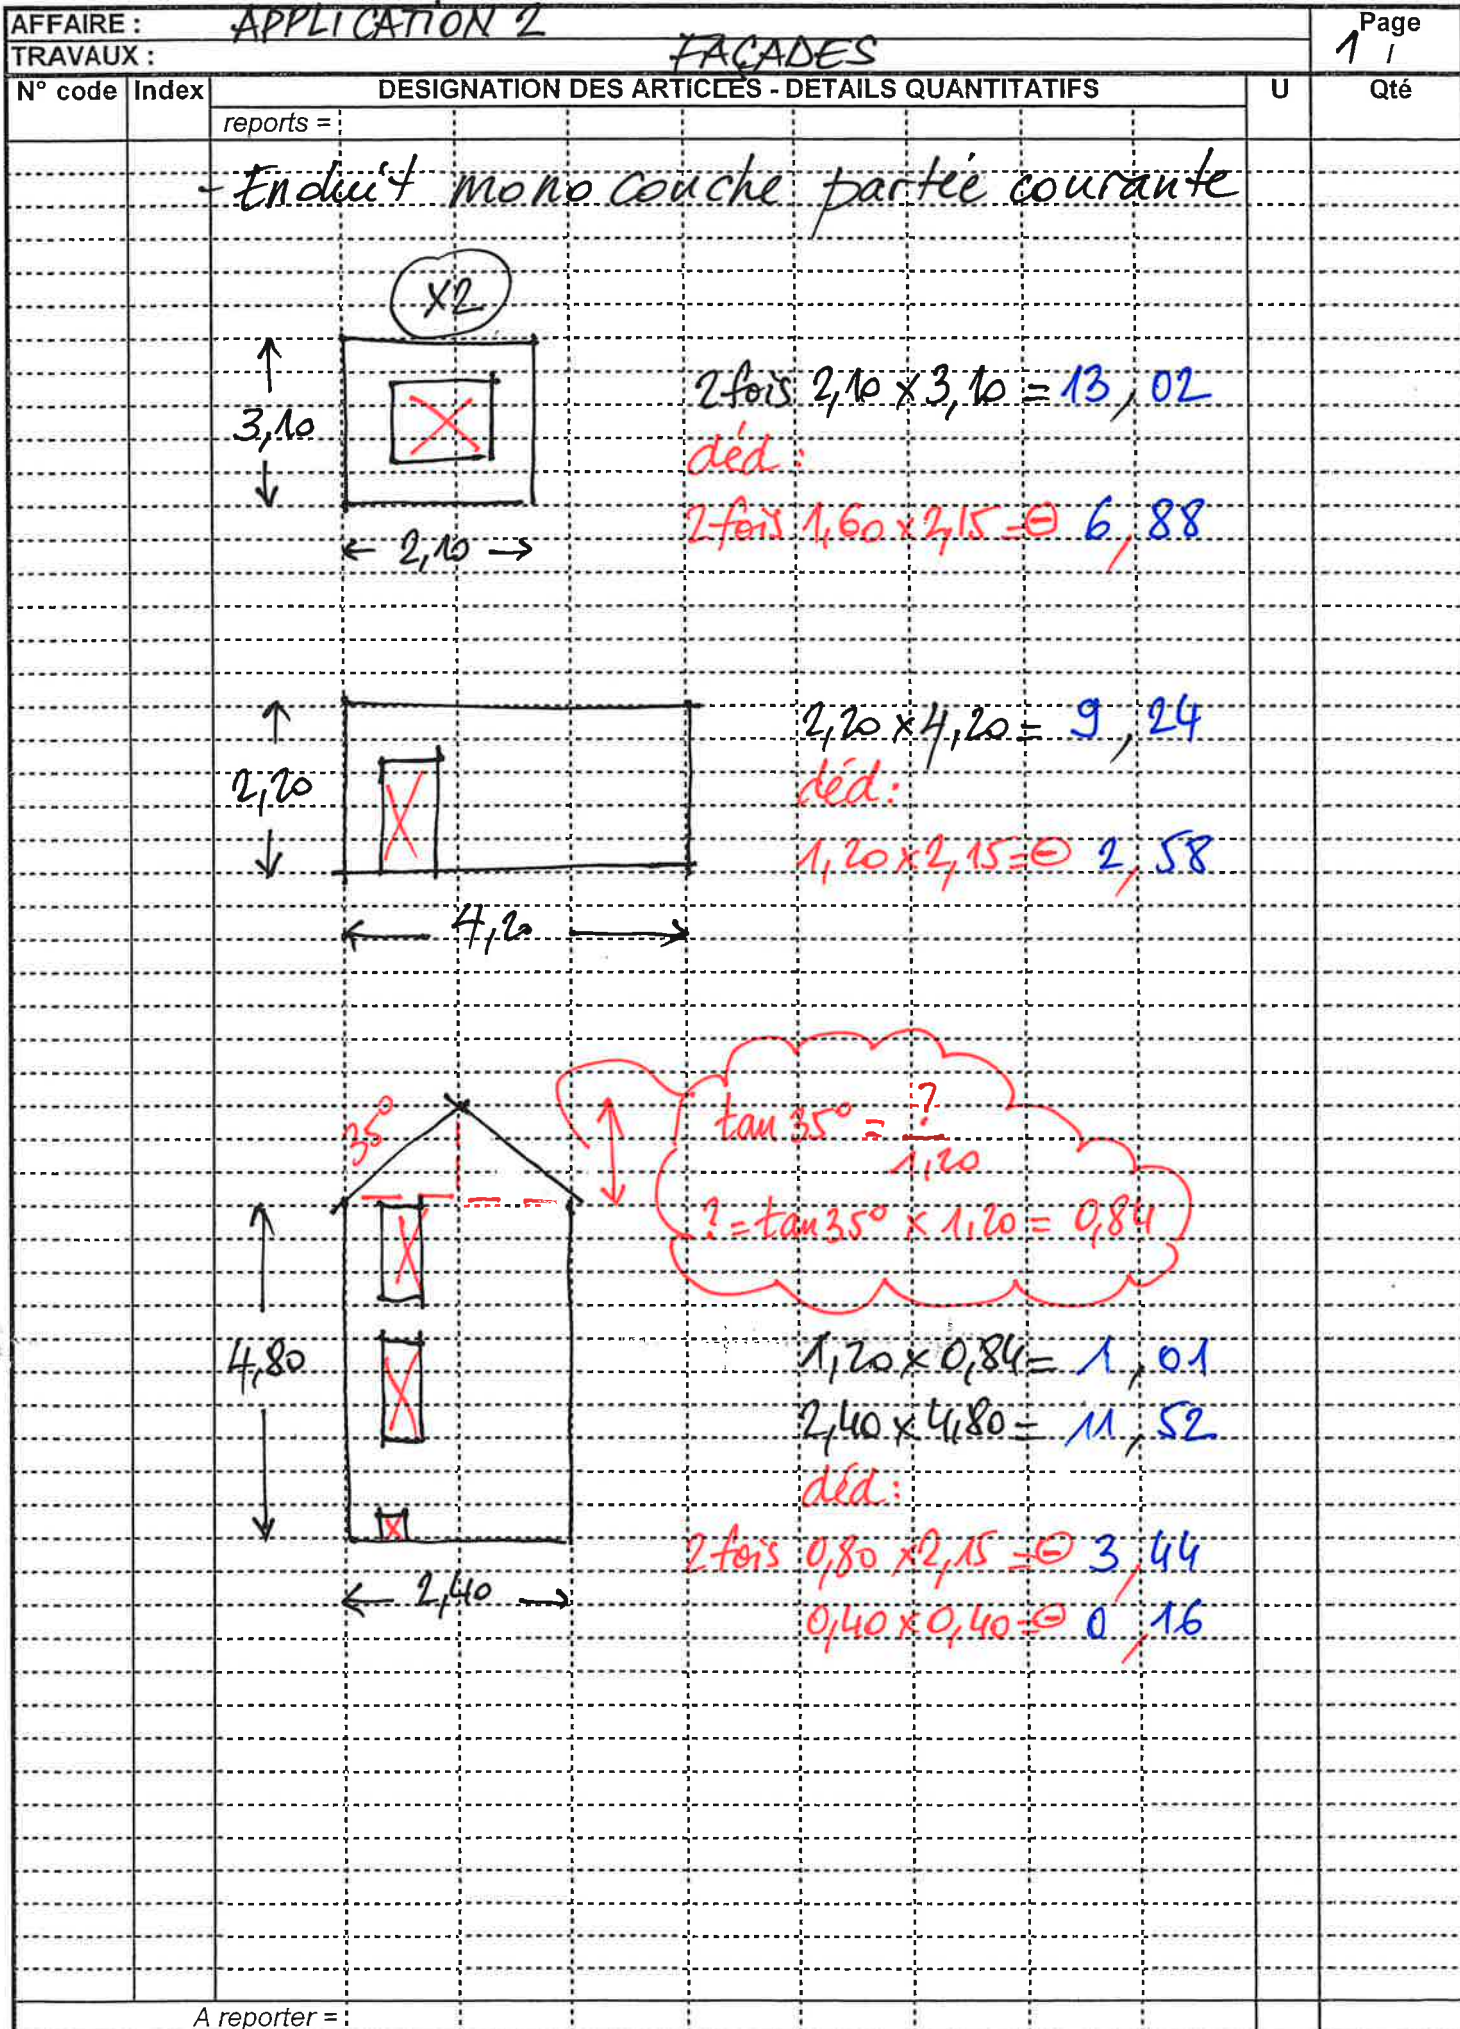 AFFAIRE : APPLICATION 2
Page
TRAVAUX : FAÇADES
1 /
N° code Index DESIGNATION DES ARTICLES - DETAILS QUANTITATIFS U Qté
reports =
- Enduit mono couche partie courante
x2
3,10
2,10
2 fois 2,10 x 3,10 = 13,02
déd :
2 fois 1,60 x 2,15 = ⊖ 6,88
2,20
4,20
2,20 x 4,20 = 9,24
déd :
1,20 x 2,15 = ⊖ 2,58
35°
tan 35° = ?
1,20
? = tan 35° x 1,20 = 0,84
4,80
2,40
1,20 x 0,84 = 1,01
2,40 x 4,80 = 11,52
déd :
2 fois 0,80 x 2,15 = ⊖ 3,44
0,40 x 0,40 = ⊖ 0,16
A reporter =